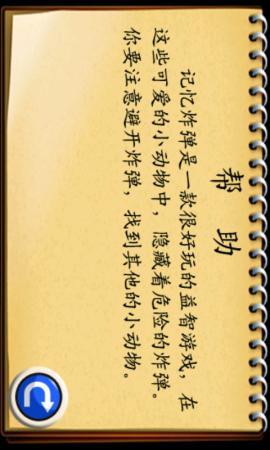 帮助
记忆炸弹是一款很好玩的益智游戏，在
这些可爱的小动物中，隐藏着危险的炸弹。
你要注意避开炸弹，找到其他的小动物。